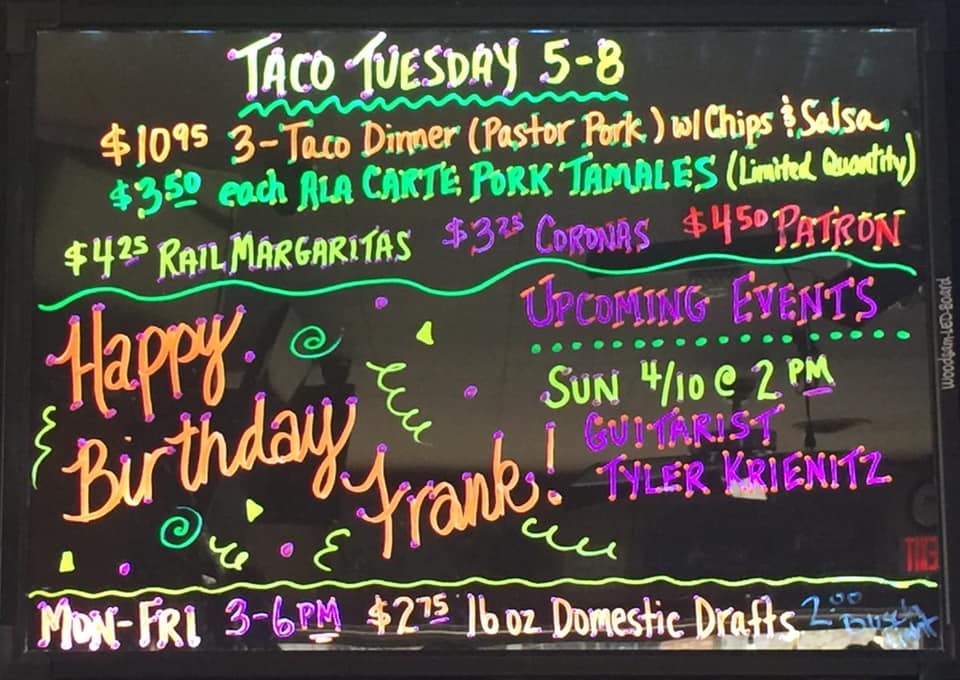 TACO TUESDAY 5-8
$10.95 3-Taco Dinner (Pastor Pork) w/ Chips & Salsa
$3.50 each ALA CARTE PORK TAMALES (Limited Quantity)
$4.25 RAIL MARGARITAS $3.25 CORONAS $4.50 PATRON
Happy
Birthday
Frank!
UPCOMING EVENTS
SUN 4/10 @ 2 PM
GUITARIST
TYLER KRIENITZ
MON-FRI 3-6 PM $2.75 16 oz Domestic Drafts 2.00
Woodsam-LED-Board